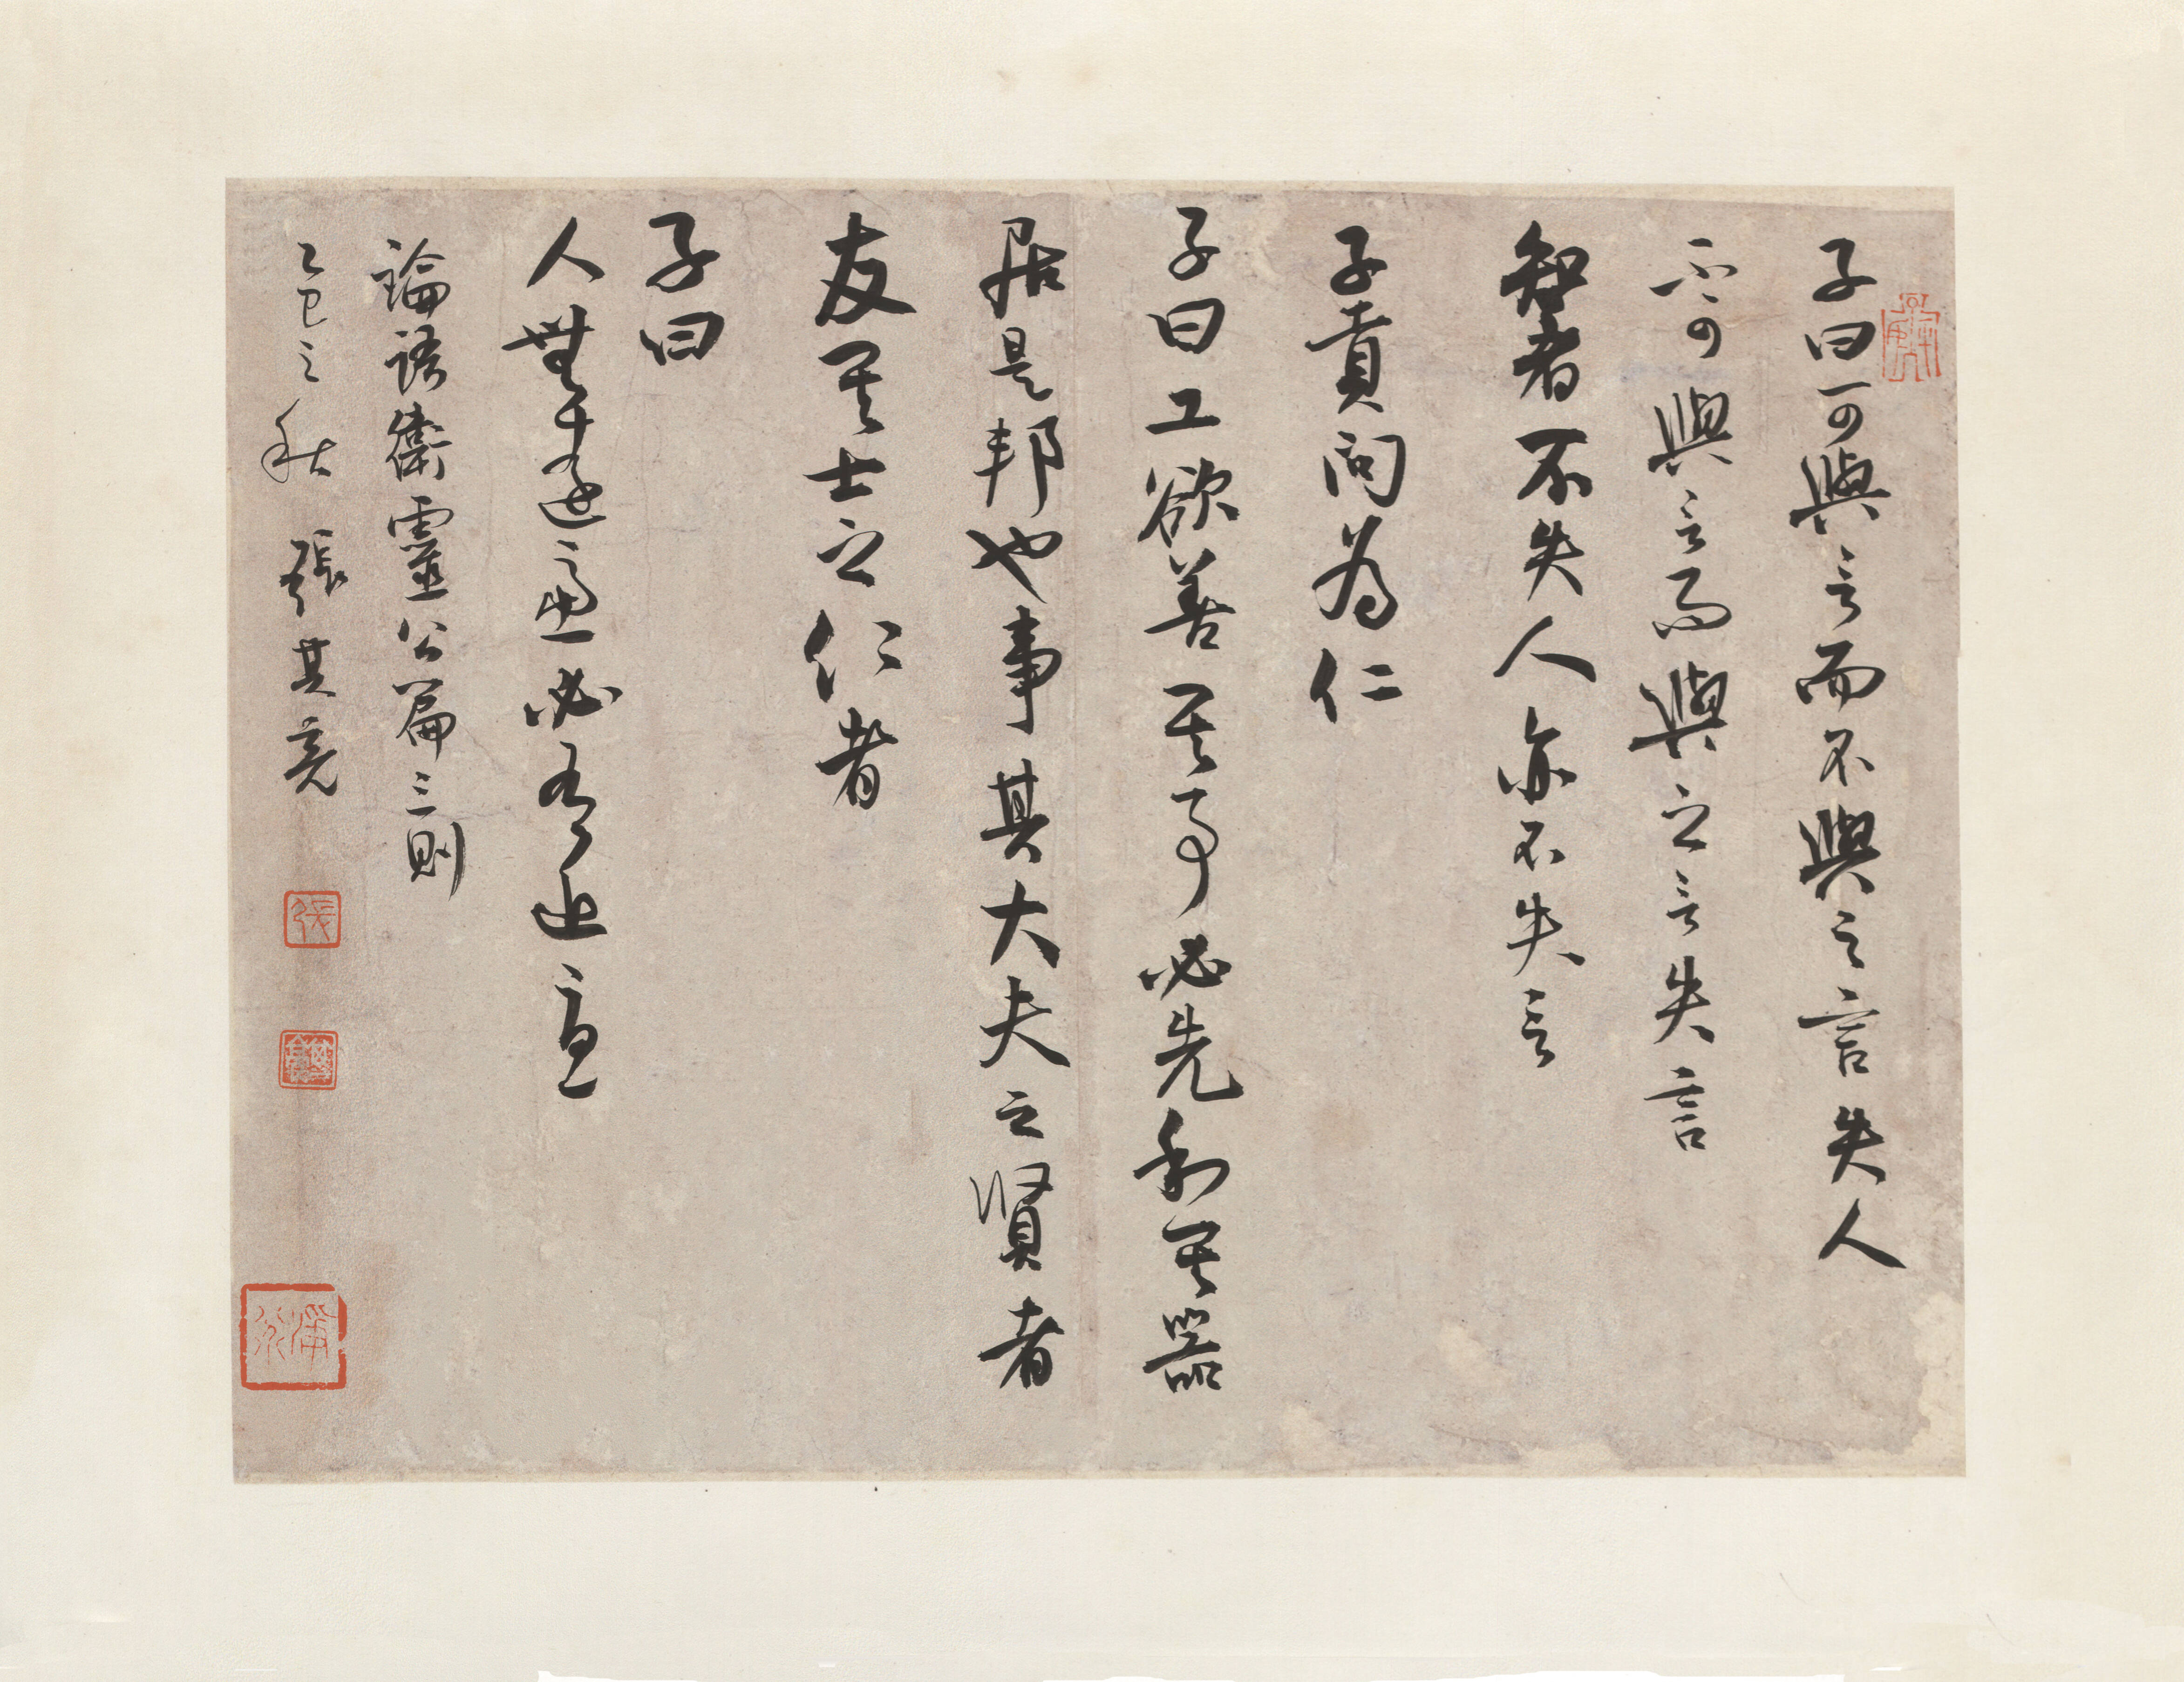 子曰可與言而不與之言失人
不可與言而與之言失言
智者不失人亦不失言
子貢問為仁
子曰工欲善其事必先利其器
居是邦也事其大夫之賢者
友其士之仁者
子曰
人無遠慮必有近憂
論語衛靈公篇三則
乙巳之秋 張其亮
張